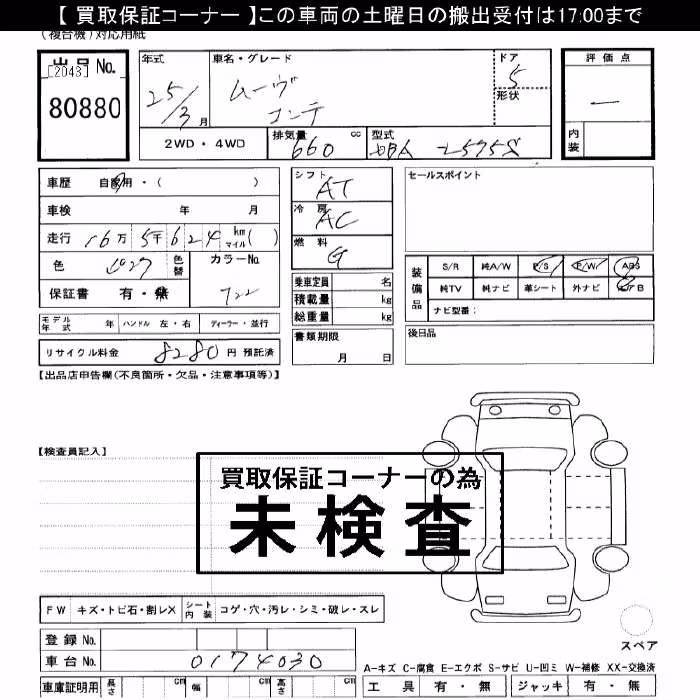 【 買取保証コーナー 】この車両の土曜日の搬出受付は17:00まで
(複合機)対応用紙
出品 No.
[2043]
80880
年式
25/3 月
車名・グレード
ムーヴ
コンテ
ドア
5
形状
評価点
―
内装
2WD・4WD
排気量 660 cc
型式 DBA L575S
車歴 自家用・( )
車検 年 月
走行 16万 5千 6 2 4 km マイル ( )
色
色替
カラーNo.
722
保証書 有・無
シフト AT
冷房 AC
燃料 G
乗車定員 名
積載量 kg
総重量 kg
セールスポイント
装備品
S/R 純A/W P/S P/W ABS
純TV 純ナビ 革シート 外ナビ エアB
ナビ型番:
モデル年式 年 ハンドル 左・右 ディーラー・並行
書類期限
月 日
後日品
リサイクル料金 8280 円 預託済
【出品店申告欄(不良箇所・欠品・注意事項等)】
【検査員記入】
買取保証コーナーの為
未検査
FW キズ・トビ石・割レX シート内装 コゲ・穴・汚レ・シミ・破レ・スレ
登録 No.
車台 No. 0174030
スペア
A-キズ C-腐食 E-エクボ S-サビ U-凹ミ W-補修 XX-交換済
車庫証明用 長さ cm 幅 cm 高さ cm
工具 有・無 ジャッキ 有・無